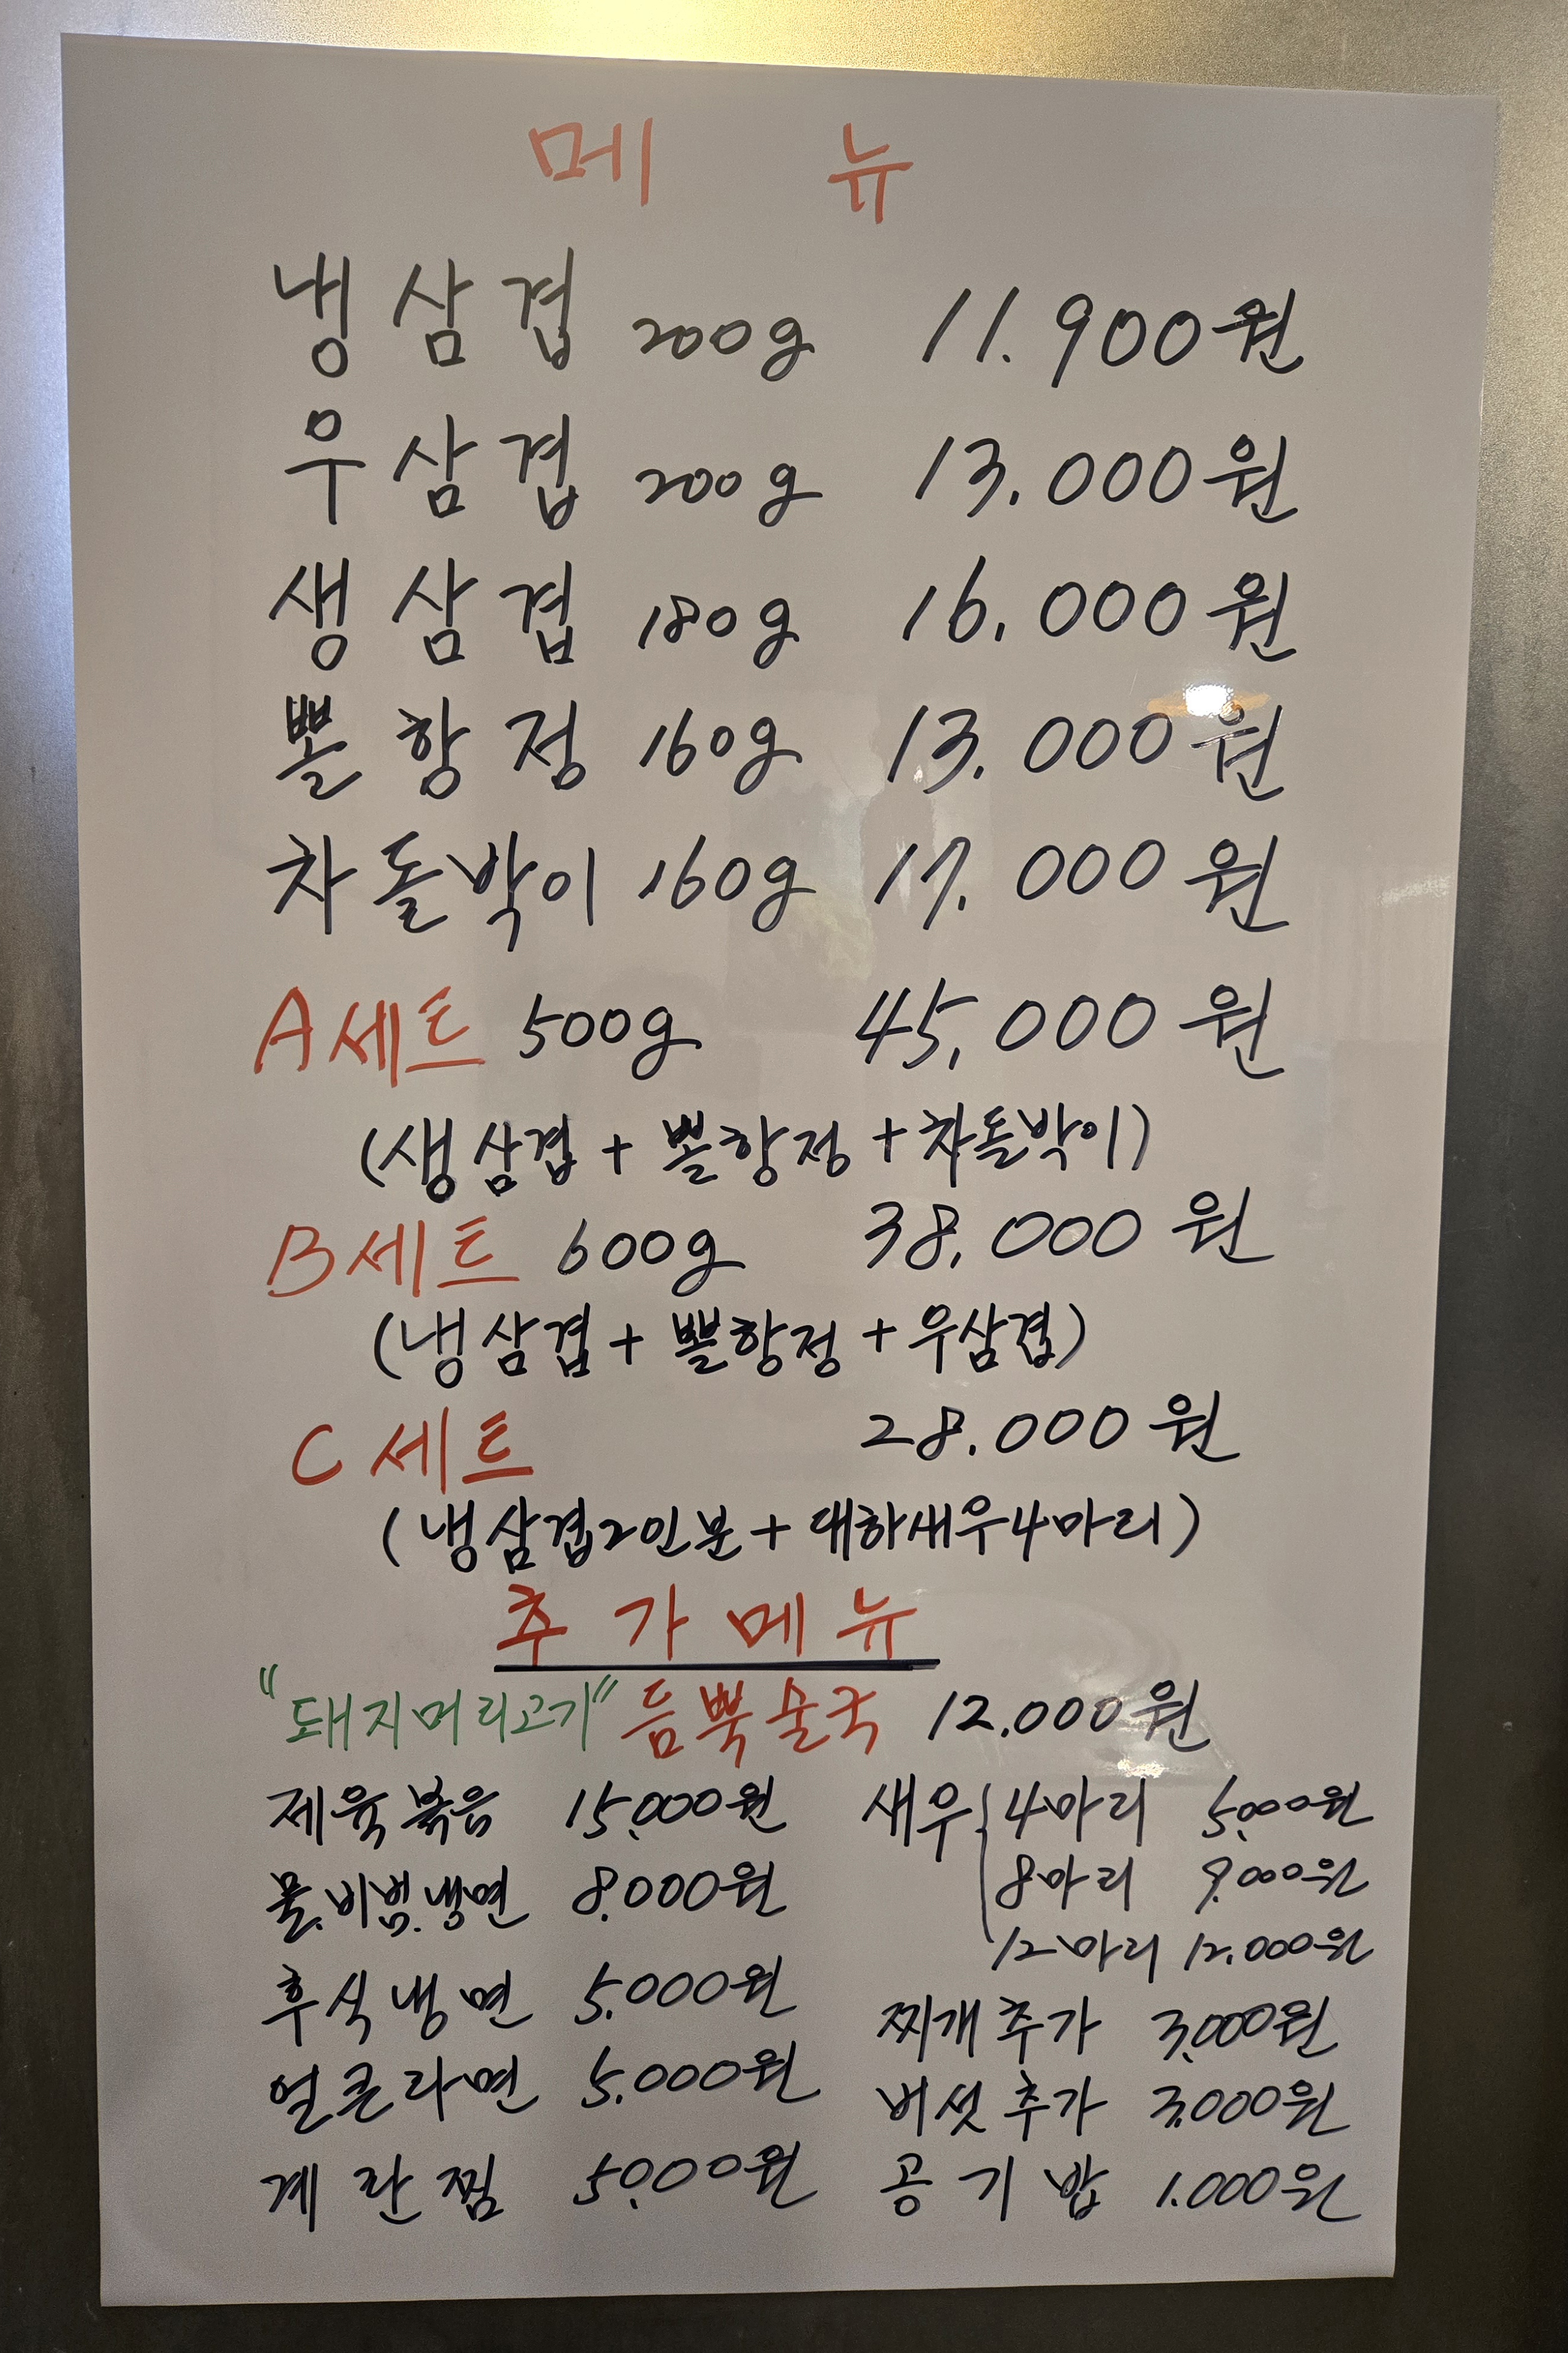 메 뉴
냉삼겹 200g 11.900원
우삼겹 200g 13.000원
생삼겹 180g 16.000원
뽈항정 160g 13.000원
차돌박이 160g 17.000원
A세트 500g 45,000원
(생삼겹 + 뽈항정 + 차돌박이)
B세트 600g 38,000원
(냉삼겹 + 뽈항정 + 우삼겹)
C세트 28.000원
(냉삼겹2인분 + 대하새우4마리)
추가메뉴
"돼지머리고기" 듬뿍술국 12.000원
제육볶음 15.000원
물.비빔.냉면 8.000원
후식냉면 5.000원
얼큰라면 5.000원
계란찜 5.000원
새우 4마리 5.000원
8마리 9.000원
12마리 12.000원
찌개추가 3.000원
버섯추가 3.000원
공기밥 1.000원